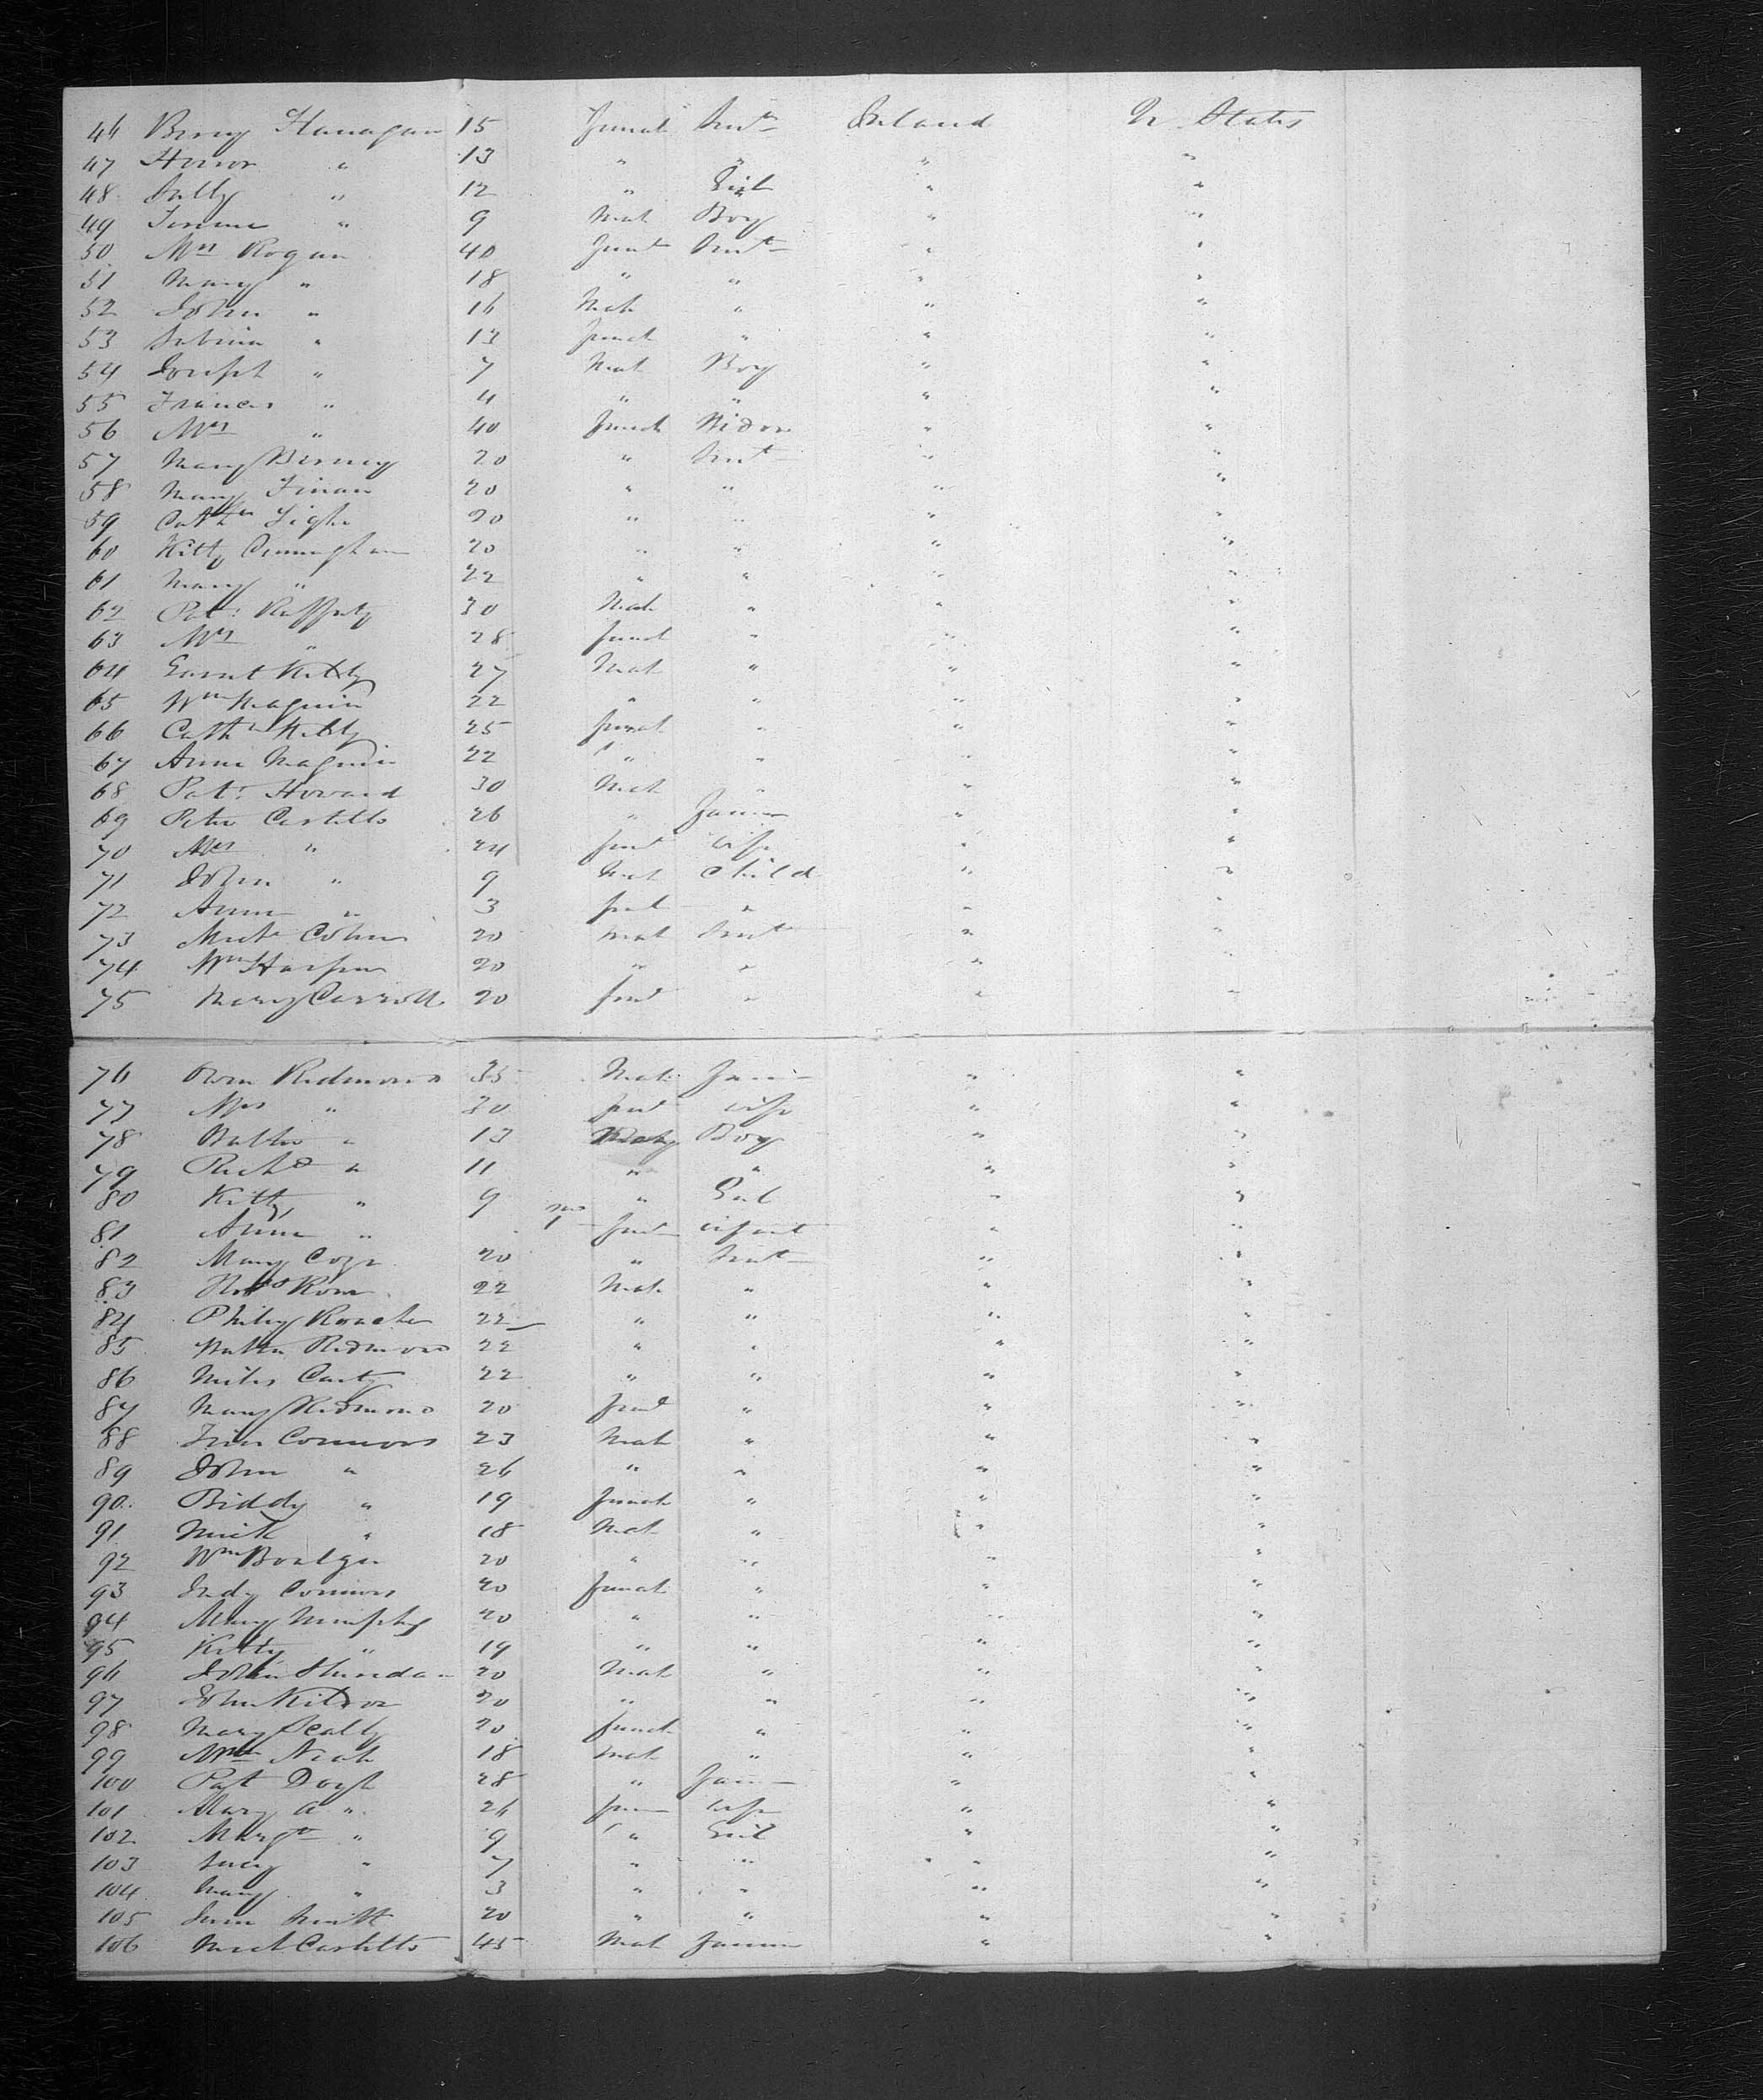 46 Flanagan 15 Femal Servt Ireland U. States
47 Honor " 13 " " " "
48 Sally " 12 " Girl " "
49 " 9 Male Boy " "
50 Mrs Rogan 40 Femal Servt " "
51 Mary " 18 " " " "
52 John " 16 Male " " "
53 Sabina " 13 Femal " " "
54 Joseph " 7 Male Boy " "
55 Frances " 4 " " " "
56 Mrs " 40 Female Widow " "
57 Mary Birney 20 " Servt " "
58 Mary Finan 20 " " " "
59 Cathn Tighe 20 " " " "
60 Kitty Cunningham 20 " " " "
61 Mary " 22 " " " "
62 Pat: Rafferty 30 Male " " "
63 Mrs " 28 Femal " " "
64 Kelly 27 Male " " "
65 Wm Maguire 22 " " " "
66 Cathn Kelly 25 Female " " "
67 Anne Maguire 22 " " " "
68 Patr Howard 30 Male " " "
69 Peter Costello 26 " Farmer " "
70 Mrs " 24 Feml wife " "
71 John " 9 Male child " "
72 Anne " 3 Fml " " "
73 Micl 20 Male Servt " "
74 Wm Harper 20 " " " "
75 Mary Carroll 20 Feml " " "
76 Redmond 35 Male Farm " "
77 Mrs " 30 Feml wife " "
78 " 13 Boy " "
79 Richd " 11 " " " "
80 Kitty " 9 " Girl " "
81 Anne " mo 1 Feml infant " "
82 Mary 20 " Servt " "
83 Robt 22 Male " " "
84 Philip Roache 22 " " " "
85 Redmond 22 " " " "
86 Miles Carty 22 " " " "
87 Mary Redmond 20 Feml " " "
88 Connors 23 Male " " "
89 John " 26 " " " "
90 Biddy " 19 Female " " "
91 Mick " 18 Male " " "
92 Wm Boulger 20 " " " "
93 Judy Connors 20 Female " " "
94 Mary Murphy 20 " " " "
95 Kitty " 19 " " " "
96 John 20 Male " " "
97 John Kildoe 20 " " " "
98 Mary Scally 20 Female " " "
99 18 Male " " "
100 Pat Doyle 28 " Farm " "
101 Mary A " 26 Fem wife " "
102 Margt " 9 " Girl " "
103 Lucy " 7 " " " "
104 Mary " 3 " " " "
105 20 " " " "
106 Micl Costello 45 Male Farmer " "